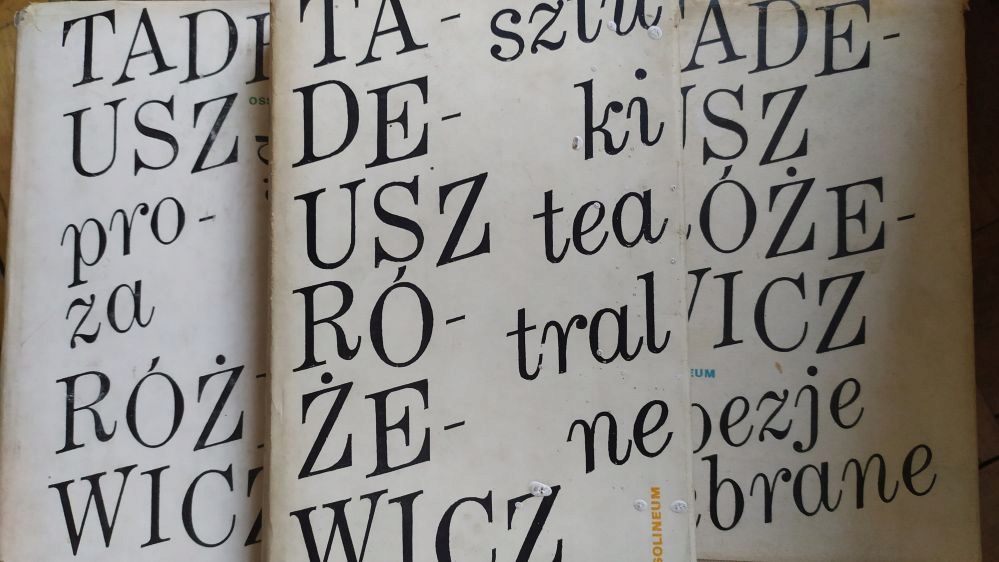 TADE
USZ
OSS
pro-
za
RÓŻ
WICZ
TA-
DE-
USZ
RÓ-
ŻE-
WICZ
sztu
ki
tea
tral
ne
SOLINEUM
ADE-
USZ
ÓŻE-
WICZ
EUM
oezje
ebrane